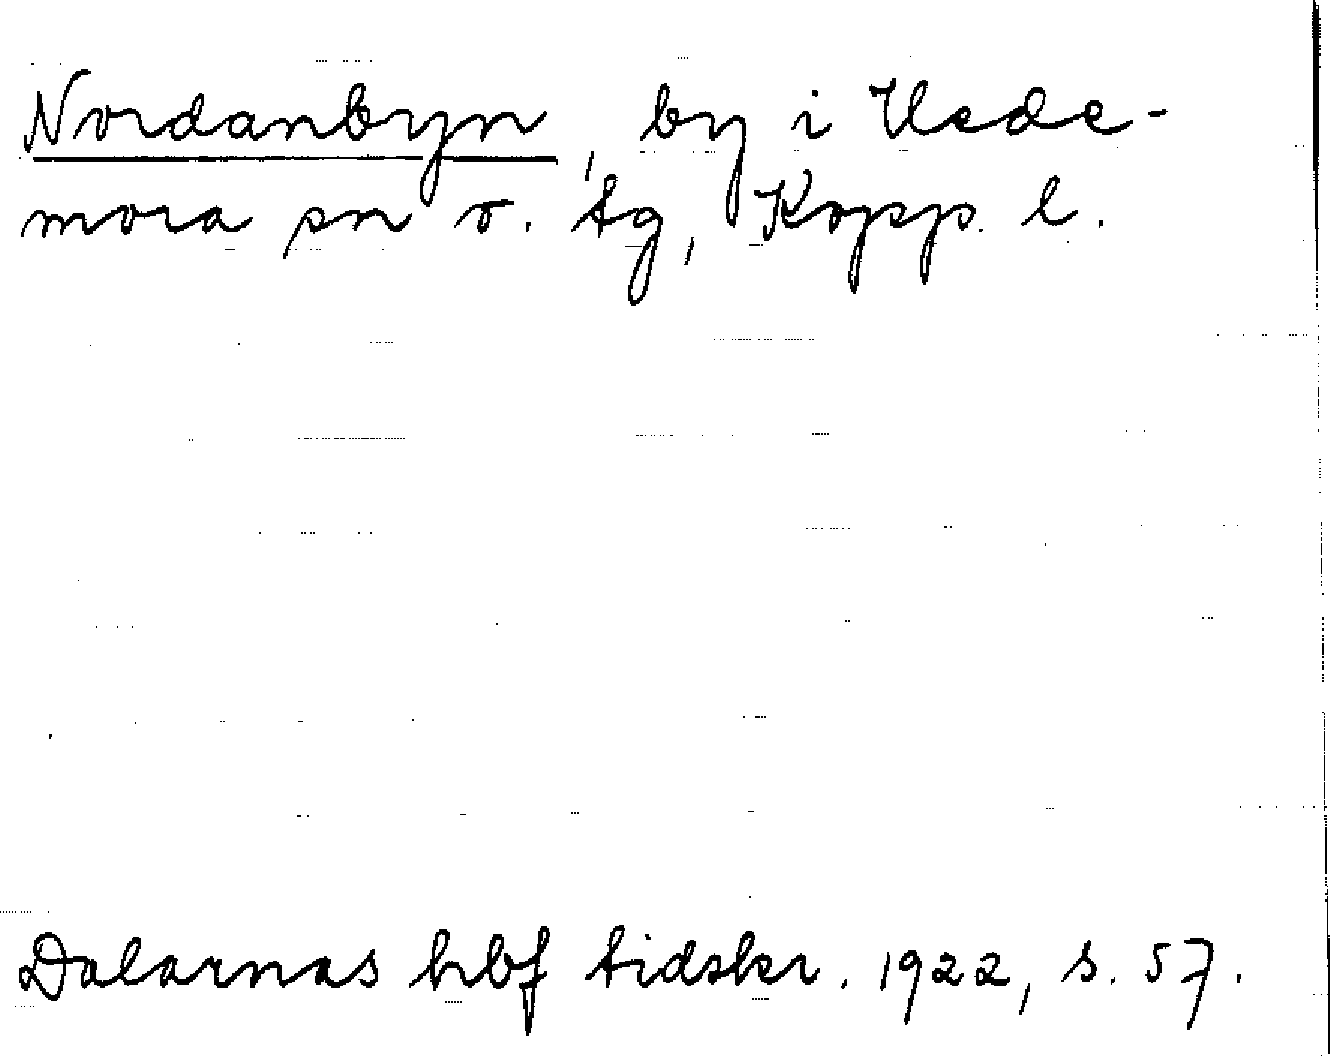 Nordanbyn, by i Hede-
mora sn o. tg, Kopp. l.
Dalarnas hbf tidskr. 1922, s. 57.